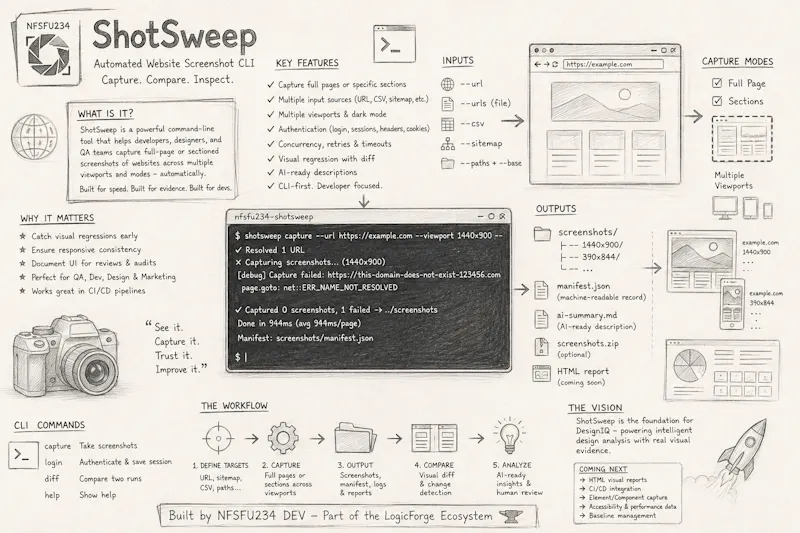 NFSFU234
ShotSweep
Automated Website Screenshot CLI
Capture. Compare. Inspect.
WHAT IS IT?
ShotSweep is a powerful command-line
tool that helps developers, designers, and
QA teams capture full-page or sectioned
screenshots of websites across multiple
viewports and modes – automatically.
Built for speed. Built for evidence. Built for devs.
WHY IT MATTERS
✓ Catch visual regressions early
✓ Ensure responsive consistency
✓ Document UI for reviews & audits
✓ Perfect for QA, Dev, Design & Marketing
✓ Works great in CI/CD pipelines
“See it.
Capture it.
Trust it.
Improve it.”
KEY FEATURES
✓ Capture full pages or specific sections
✓ Multiple input sources (URL, CSV, sitemap, etc.)
✓ Multiple viewports & dark mode
✓ Authentication (login, sessions, headers, cookies)
✓ Concurrency, retries & timeouts
✓ Visual regression with diff
✓ AI-ready descriptions
✓ CLI-first. Developer focused.
>_
INPUTS
--url
--urls (file)
--csv
--sitemap
--paths + --base
https://example.com
CAPTURE MODES
Full Page
Sections
Multiple
Viewports
nfsfu234-shotsweep
$ shotsweep capture --url https://example.com --viewport 1440x900 --
✓ Resolved 1 URL
✕ Capturing screenshots... (1440x900)
[debug] Capture failed: https://this-domain-does-not-exist-123456.com
page.goto: net::ERR_NAME_NOT_RESOLVED
✓ Captured 0 screenshots, 1 failed → ../screenshots
Done in 944ms (avg 944ms/page)
Manifest: screenshots/manifest.json
$
OUTPUTS
screenshots/
├-- 1440x900/
├-- 390x844/
└-- ...
manifest.json
(machine-readable record)
ai-summary.md
(AI-ready description)
screenshots.zip
(optional)
HTML report
(coming soon)
example.com
1440x900
...
example.com
390x844
...
CLI COMMANDS
>_
capture Take screenshots
login Authenticate & save session
diff Compare two runs
help Show help
THE WORKFLOW
1. DEFINE TARGETS
URL, sitemap,
CSV, paths...
2. CAPTURE
Full pages or
sections across
viewports
3. OUTPUT
Screenshots,
manifest, logs
& reports
4. COMPARE
Visual diff
& change
detection
5. ANALYZE
AI-ready
insights &
human review
THE VISION
ShotSweep is the foundation for
DesignIQ – powering intelligent
design analysis with real visual
evidence.
COMING NEXT
→ HTML visual reports
→ CI/CD integration
→ Element/Component capture
→ Accessibility & performance data
→ Baseline management
Built by NFSFU234 DEV – Part of the LogicForge Ecosystem